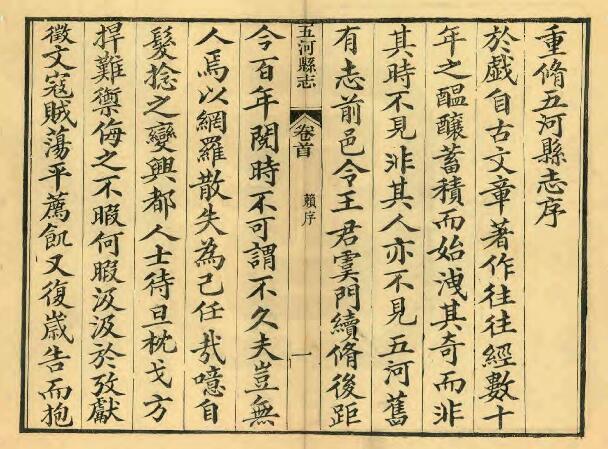 重脩五河縣志序
於戲自古文章著作往往經數十
年之醞釀蓄積而始洩其奇而非
其時不見非其人亦不見五河舊
有志前邑令王君霙門續脩後距
五河縣志
卷首
賴序
一
今百年閱時不可謂不久夫豈無
人焉以網羅散失為己任哉噫自
髮捻之變興都人士待旦枕戈方
捍難禦侮之不暇何暇汲汲於攷獻
徵文寇賊蕩平薦飢又復歲告而抱